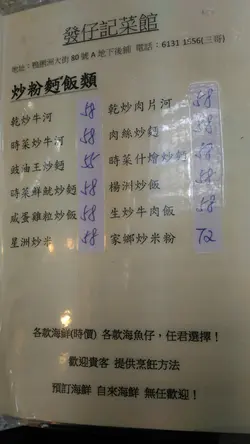 發仔記菜館
地址：鴨脷洲大街 80 號 A 地下後鋪 電話：6131 1556(三哥)
炒粉麵飯類
乾炒牛河 58 乾炒肉片河 58
時菜炒牛河 58 肉絲炒麵 58
豉油王炒麵 55 時菜什燴炒麵 58
時菜鮮魷炒麵 58 楊洲炒飯 58
咸蛋雞粒炒飯 58 生炒牛肉飯 58
星洲炒米 58 家鄉炒米粉 72
各款海鮮(時價) 各款海魚仔，任君選擇！
歡迎貴客 提供烹飪方法
預訂海鮮 自來海鮮 無任歡迎！